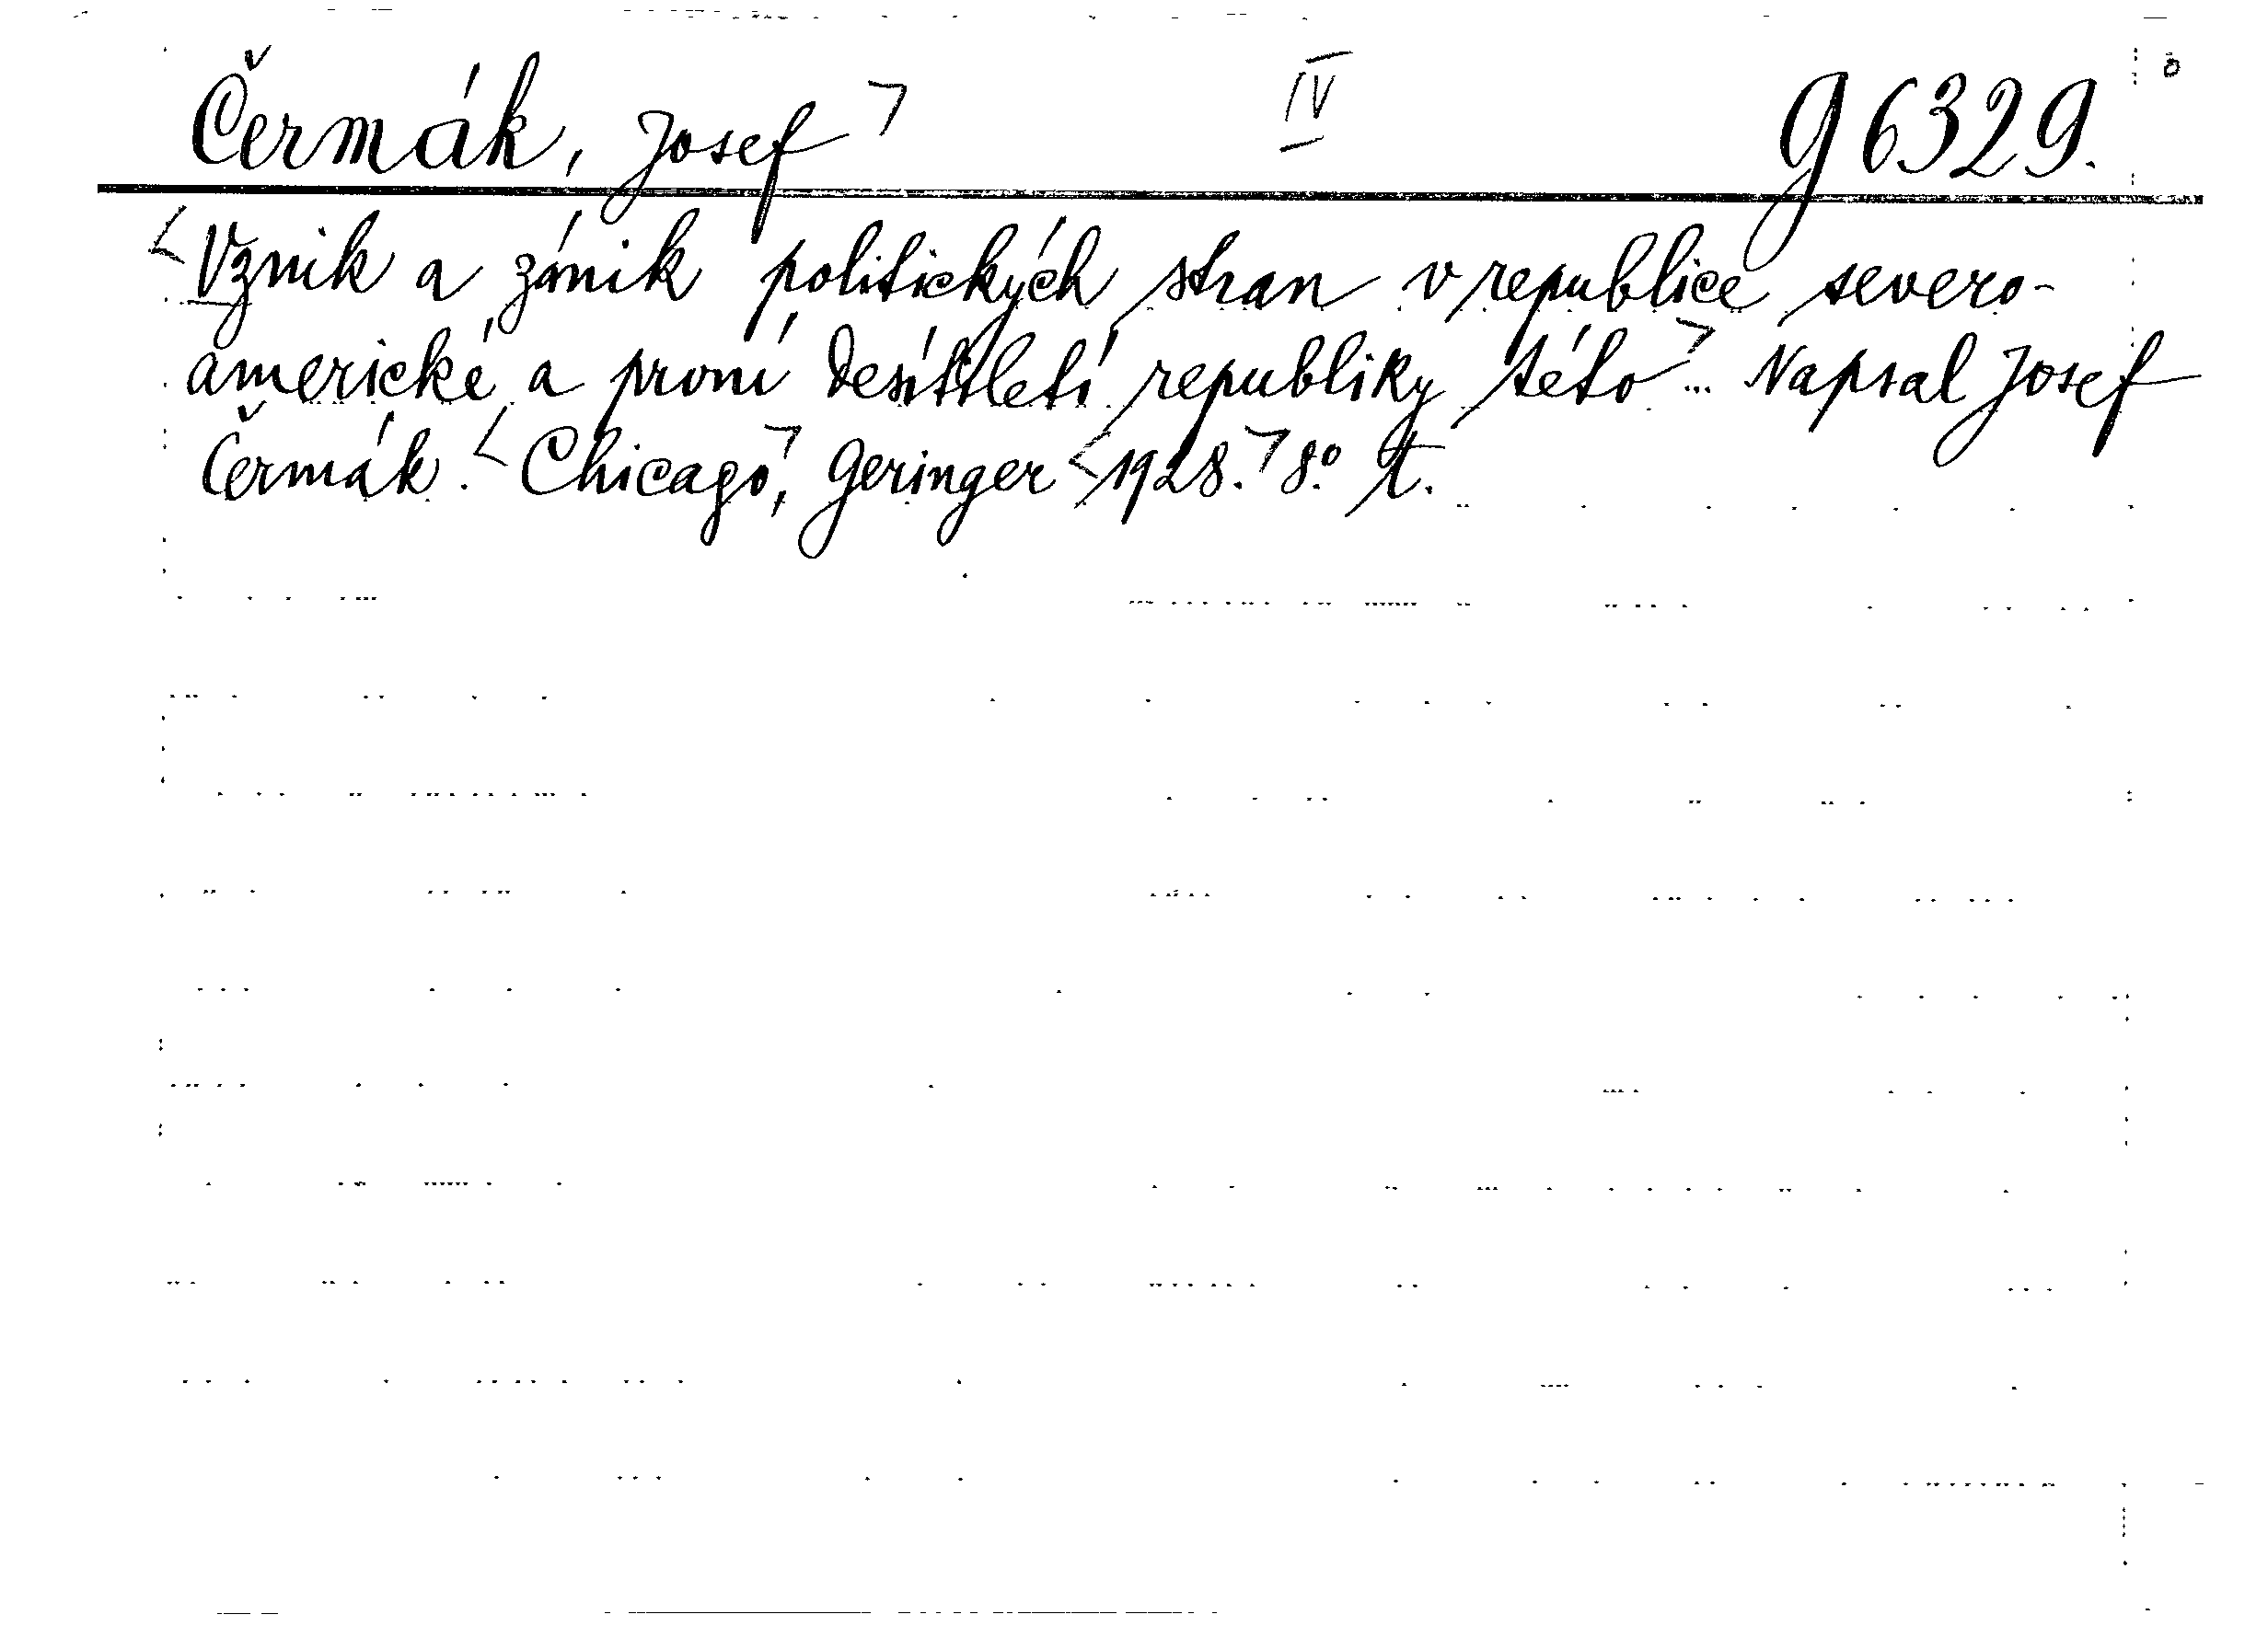 Čermák, Josef ⌝ IV g 6329.
<Vznik a zánik politických stran v republice severo-
americké a první desítiletí republiky této⌝... Napsal Josef
Čermák. <Chicago⌝, Geringer <1928.⌝ 8.° t.